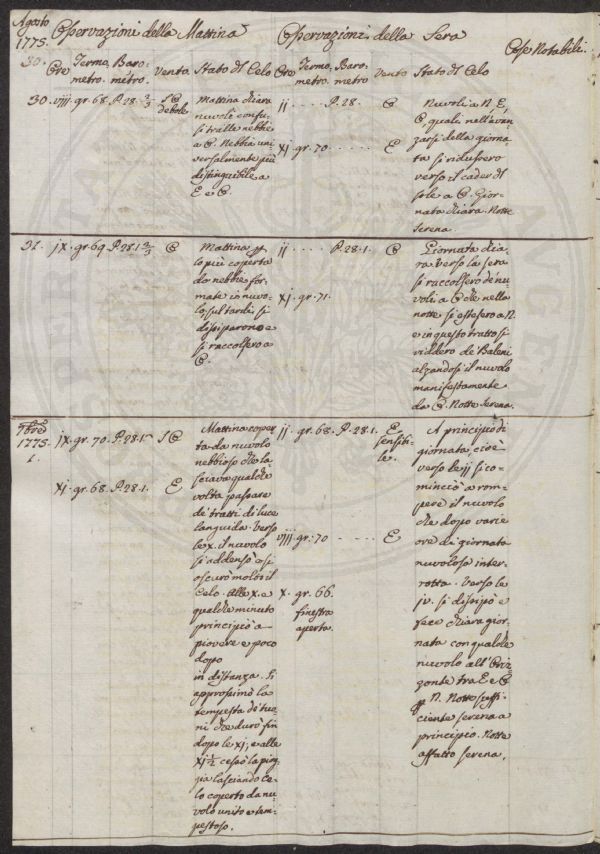 Agosto
1775.
Osservazioni della Mattina
Osservazioni della Sera
Cose Notabili.
30.
Ore Termo- Baro-
metro. metro.
Vento Stato dl Celo
Ore Termo- Baro-
metro. metro
Vento Stato dl Celo
30. viij. gr. 68. P. 28. 2/3
S O
debole
Mattina chiara
nuvoli confu-
si tralle nebbie
a O. Nebbia uni-
versalmente più
distinguibile a
E e O.
ij . . . . P. 28. O
xj. gr. 70 . . . . . E
Nuvoli a N E,
O quali nell'avan-
zarsi della giorna-
ta si ridussero
verso il cader dl
sole a O. Gior-
nata chiara. Notte
serena.
31. jx. gr. 69. P. 28.1 2/3 O
Mattina p. 
lo più coperta
da nebbie for-
mate in nuvo-
lo, sul tardi si
dissiparono e
si raccolsero a
O.
ij . . . . P. 28.1. O
xj. gr. 71.
Giornata chia-
ra. Verso la sera
si raccolsero de' nu-
voli a O che nella
notte si estesero a N.
e in questo tratto si
viddero de' Baleni
alzandosi il nuvolo
manifestamente
da O. Notte serena.
7bre
1775
1.
jx. gr. 70. P. 28.1 S O
xj. gr. 68. P. 28.1. E
Mattina coper-
ta da nuvolo
nebbioso che la-
sciava qualche
volta passare
de' tratti di luce
languida. Verso
le x. il nuvolo
si addensò e si
oscurò molto il
Celo. Alle x. e
qualche minuto
principiò a
piovere e poco
dopo
in distanza. Si
approssimò la
tempesta de' tuo-
ni che durò fin
dopo le xj, e alle
xj 1/2 cessò la piog-
gia lasciando Ce-
lo coperto da nu-
volo unito e tem-
pestoso.
ij. gr. 68. P. 28.1. E
sensibi-
le.
viij. gr. 70 . . . . . E
x. gr. 66.
finestra
aperta.
A principio di
giornata, cioè
verso le ij si co-
minciò a rom-
pere il nuvolo
che dopo varie
ore di giornata
nuvolosa inter-
rotta. Verso le
jv. si dissipò e
fece chiara gior-
nata con qualche
nuvolo all'Oriz-
zonte tra E e O
p. N. Notte suffi-
ciente serena a
principio. Notte
affatto serena.